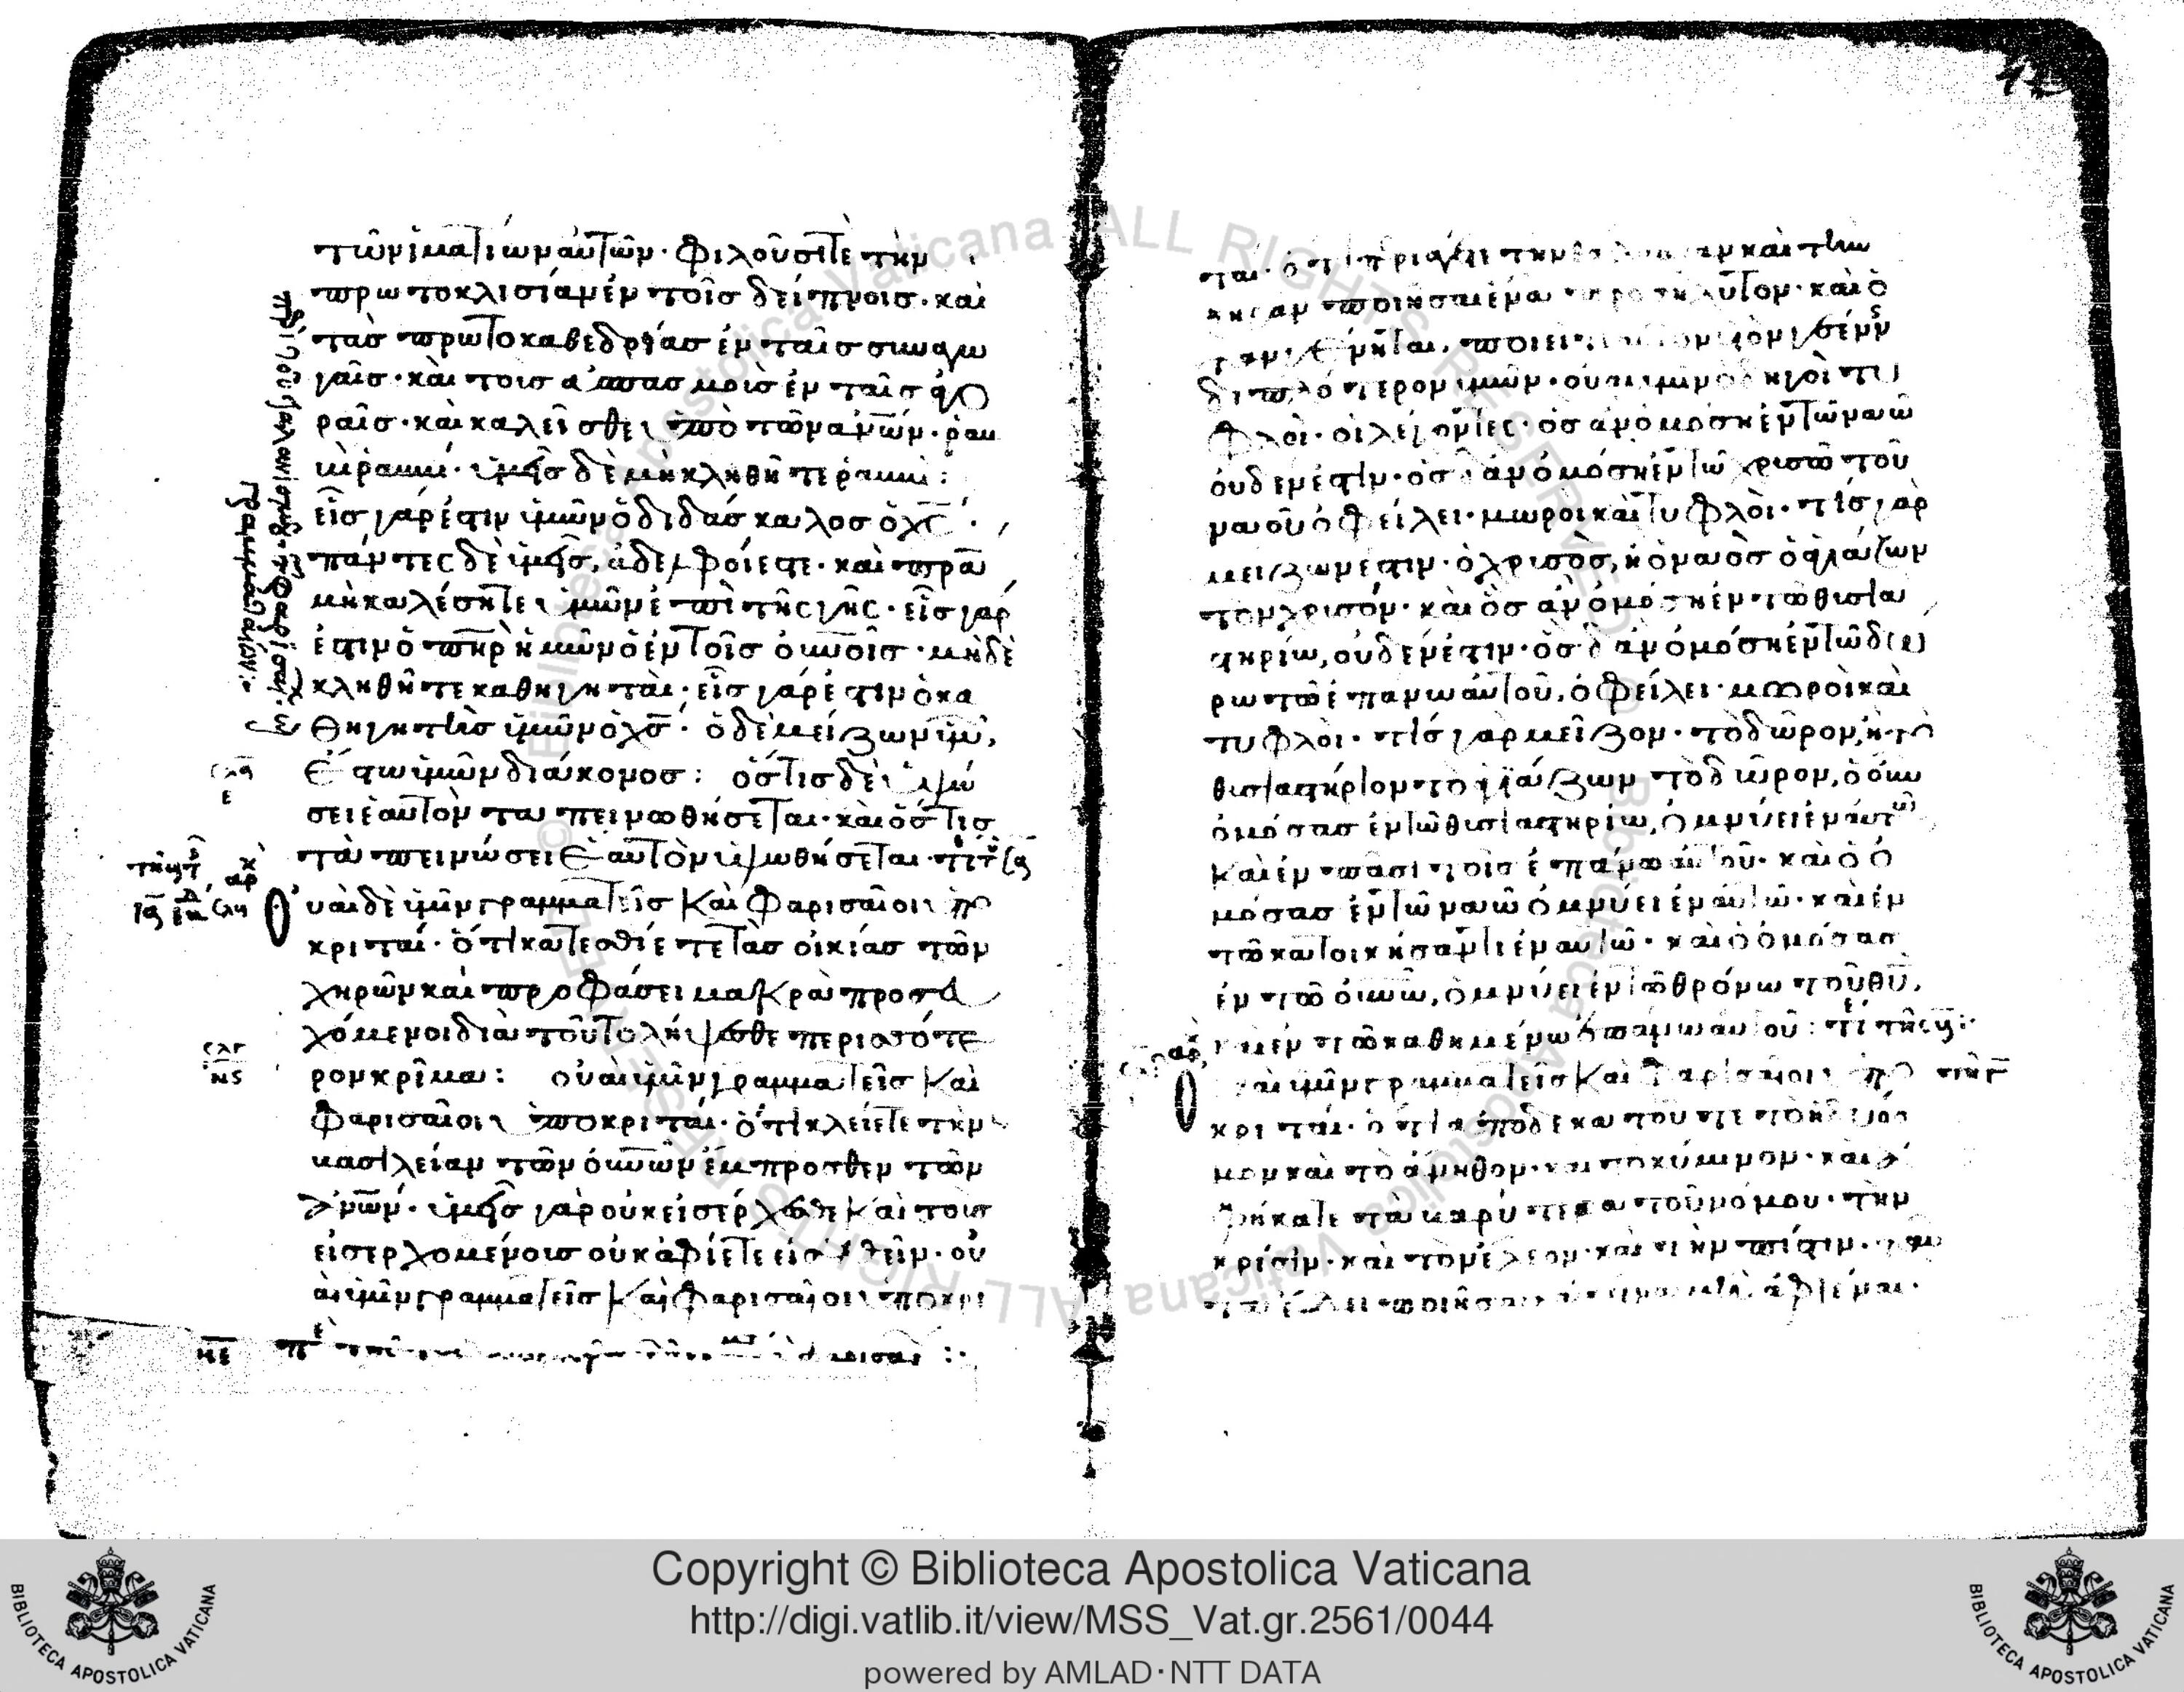 τῶν ἱματίων αὐτῶν· φιλοῦσί τε τὴν
πρωτοκλισίαν ἐν τοῖς δείπνοις· καὶ
τὰς πρωτοκαθεδρίας ἐν ταῖς συναγω
γαῖς· καὶ τοὺς ἀσπασμοὺς ἐν ταῖς ἀγο
ραῖς· καὶ καλεῖσθαι ὑπὸ τῶν ἀνῶν· ῥαβ
βὶ ῥαββί· ὑμεῖς δὲ μὴ κληθῆτε ῥαββί:
εἷς γάρ ἐστιν ὑμῶν ὁ διδάσκαλος ὁ χς·
πάντες δὲ ὑμεῖς, ἀδελφοί ἐστε· καὶ πρα
μὴ καλέσητε ὑμῶν ἐπὶ τῆς γῆς· εἷς γάρ
ἐστιν ὁ πηρ ἡμῶν ὁ ἐν τοῖς ὀυνοῖς· μηδὲ
κληθῆτε καθηγηταί· εἷς γάρ ἐστιν ὁ κα
θηγητὴς ὑμῶν ὁ χς· ὁ δὲ μείζων ὑμῶν,
ἔστω ὑμῶν διάκονος: ὅστις δὲ ὑψώ
σει ἑαυτὸν ταπεινωθήσεται· καὶ ὅστις
ταπεινώσει ἑαυτὸν ὑψωθήσεται·
οὐαὶ δὲ ὑμῖν γραμματεῖς καὶ φαρισαῖοι ὑπο
κριταί· ὅτι κατεσθίετε τὰς οἰκίας τῶν
χηρῶν καὶ προφάσει μακρὰ προσευ
χόμενοι διὰ τοῦτο λήψεσθε περισσότε
ρον κρῖμα: οὐαὶ ὑμῖν γραμματεῖς καὶ
φαρισαῖοι ὑποκριταί· ὅτι κλείετε τὴν
βασιλείαν τῶν ὀυνῶν ἔμπροσθεν τῶν
ἀνῶν· ὑμεῖς γὰρ οὐκ εἰσέρχεσθε καὶ τοὺς
εἰσερχομένους οὐκ ἀφίετε εἰσελθεῖν· οὐ
αὶ ὑμῖν γραμματεῖς καὶ φαρισαῖοι ὑποκρι
ταί· ὅτι περιάγετε τὴν θάλασσαν καὶ τὴν
ξηρὰν ποιῆσαι ἕνα προσήλυτον· καὶ ὅ
ταν γένηται, ποιεῖτε αὐτὸν υἱὸν γεέννης
διπλότερον ὑμῶν· οὐαὶ ὑμῖν ὁδηγοὶ τυ
φλοί· οἱ λέγοντες· ὃς ἂν ὀμόσῃ ἐν τῶ ναῶ
οὐδέν ἐστιν· ὃς δ' ἂν ὀμόσῃ ἐν τῶ χρυσῶ τοῦ
ναοῦ ὀφείλει· μωροὶ καὶ τυφλοί· τίς γὰρ
μείζων ἐστιν· ὁ χρυσὸς, ἢ ὁ ναὸς ὁ ἁγιάζων
τὸν χρυσόν· καὶ ὃς ἂν ὀμόσῃ ἐν τῶ θυσια
στηρίω, οὐδέν ἐστιν· ὃς δ' ἂν ὀμόσῃ ἐν τῶ δώ
ρω τῶ ἐπάνω αὐτοῦ, ὀφείλει· μωροὶ καὶ
τυφλοί· τίς γὰρ μεῖζον· τὸ δῶρον, ἢ τὸ
θυσιαστήριον τὸ ἁγιάζων τὸ δῶρον, ὁ οὖν
ὀμόσας ἐν τῶ θυσιαστηρίω, ὀμνύει ἐν αὐτῶ
καὶ ἐν πᾶσι τοῖς ἐπάνω αὐτοῦ· καὶ ὁ ὀ
μόσας ἐν τῶ ναῶ ὀμνύει ἐν αὐτῶ· καὶ ἐν
τῶ κατοικήσαντι ἐν αὐτῶ· καὶ ὁ ὀμόσας
ἐν τῶ ὀυνῶ, ὀμνύει ἐν τῶ θρόνω τοῦ θυ,
καὶ ἐν τῶ καθημένω ἐπάνω αὐτοῦ:
οὐαὶ ὑμῖν γραμματεῖς καὶ φαρισαῖοι ὑπο
κριταί· ὅτι ἀποδεκατοῦτε τὸ ἡδύοσ
μον καὶ τὸ ἄνηθον· καὶ τὸ κύμινον· καὶ ἀ
φήκατε τὰ βαρύτερα τοῦ νόμου· τὴν
κρίσιν· καὶ τὸν ἔλεον· καὶ τὴν πίστιν.
ταῦτα ἔδει ποιῆσαι κἀκεῖνα μὴ ἀφιέναι.
Copyright © Biblioteca Apostolica Vaticana
http://digi.vatlib.it/view/MSS_Vat.gr.2561/0044
powered by AMLAD·NTT DATA
BIBLIOTECA APOSTOLICA VATICANA
BIBLIOTECA APOSTOLICA VATICANA